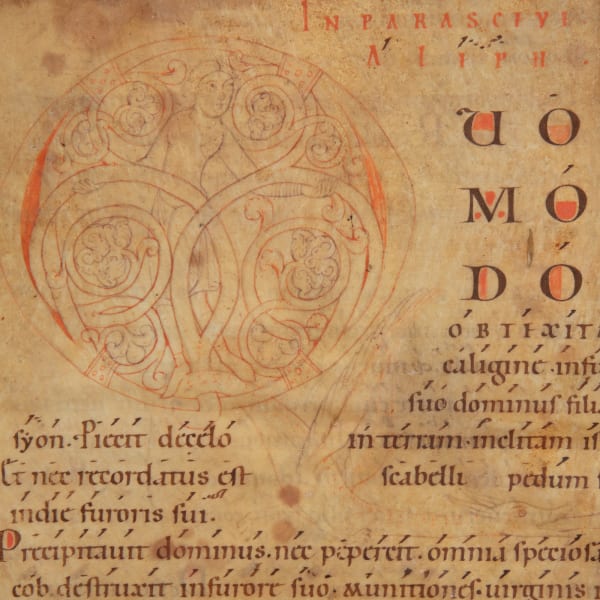 IN PARASCEVE
ALEPH.
UO
MÓ
DÓ
OBTEXIT
caligine·in fu
suo dominus fili
syon. Piecit decelo in terram·inclitam is
Et nec recordatus est scabelli pedum
in die furoris sui.
Precipitauit dominus. nec pepercit. omnia speciosa
cob. destruxit in furore suo. munitiones. uirginis